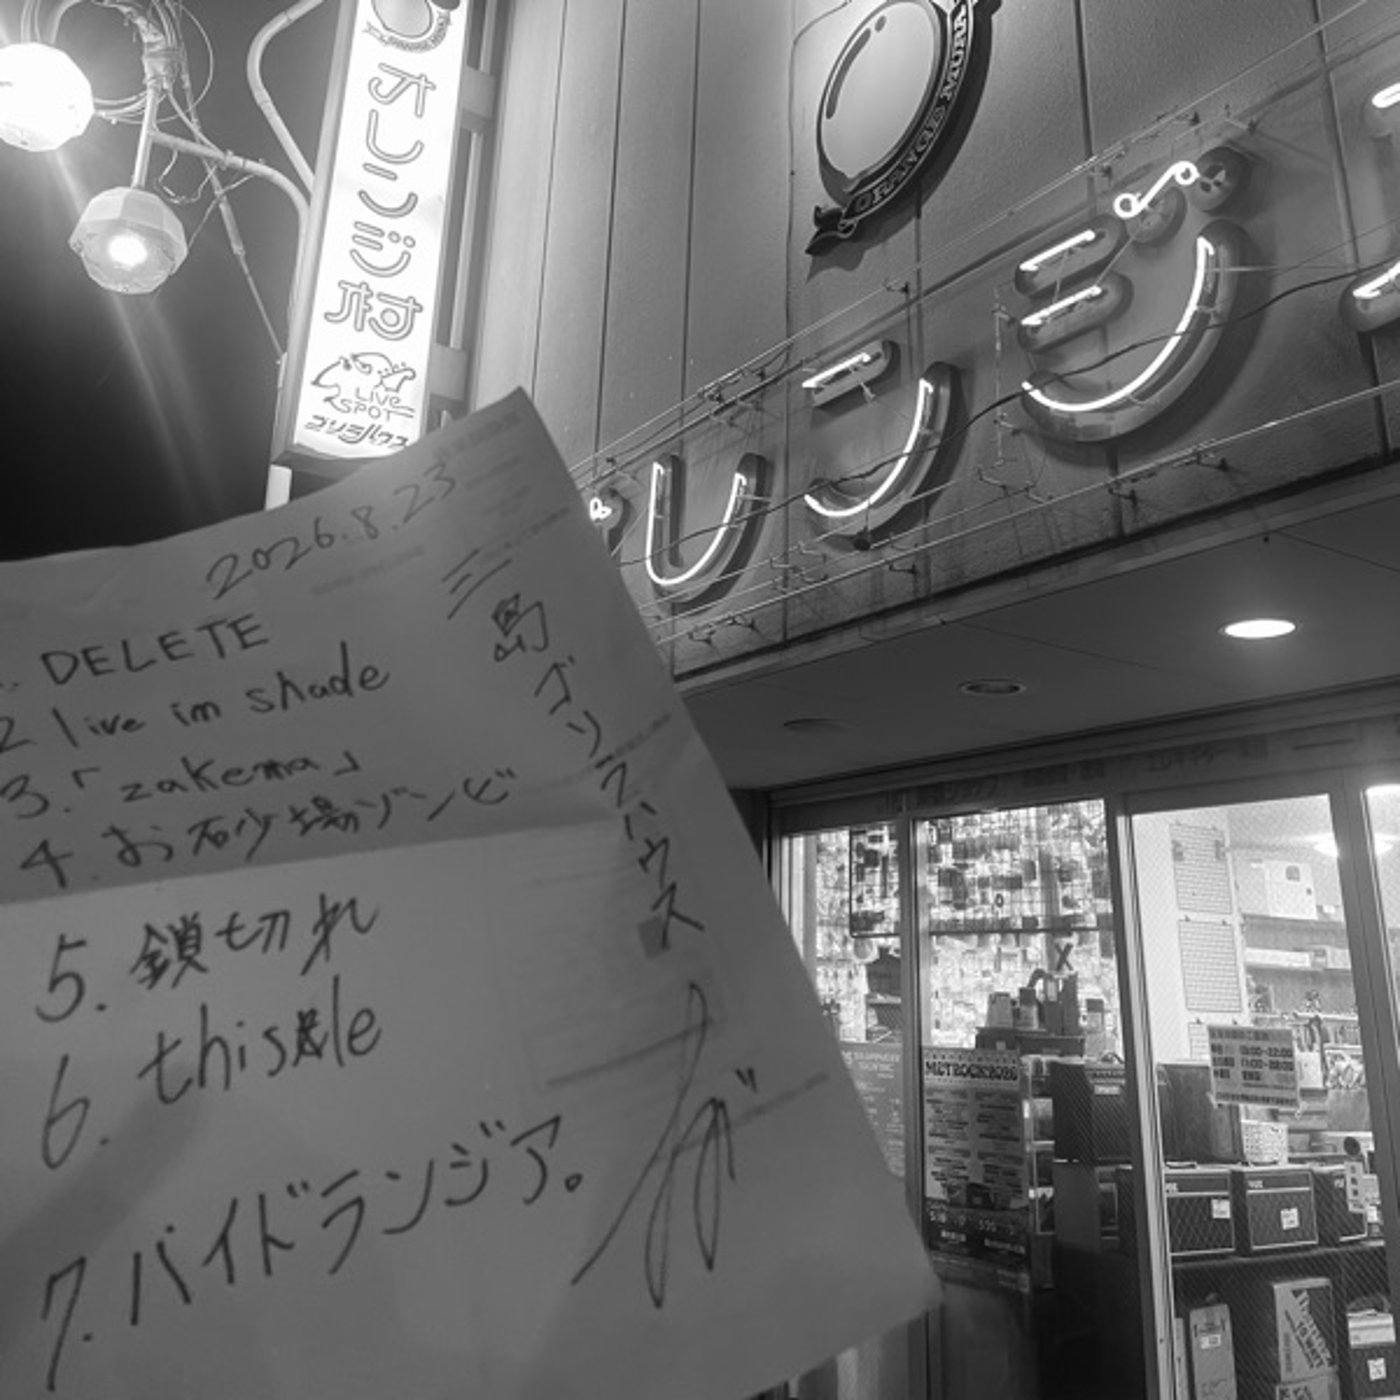 オレンジ村
LIVE
SPOT
ゴリラハウス
ORANGE MURA
レンジ
2026.8.23
三島ゴリラハウス
DELETE
2 live im shade
3.「zakema」
4.お砂場ゾンビ
5.鎖切れ
6.thisle
7.バイドランジア。
METROCK2026